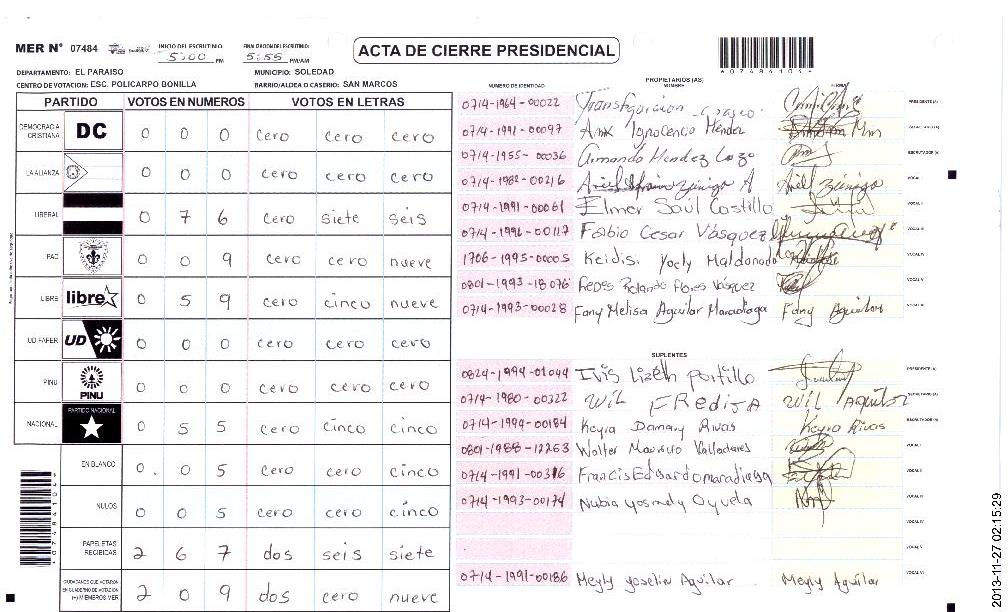 MER N° 07484 INICIO DEL ESCRUTINIO 5:00 PM FINALIZACION DEL ESCRUTINIO: 5:55 PM/AM
ACTA DE CIERRE PRESIDENCIAL
DEPARTAMENTO: EL PARAISO MUNICIPIO: SOLEDAD
CENTRO DE VOTACION: ESC. POLICARPO BONILLA BARRIO/ALDEA O CASERIO: SAN MARCOS
PARTIDO VOTOS EN NUMEROS VOTOS EN LETRAS
DEMOCRACIA CRISTIANA DC 0 0 0 cero cero cero
LA ALIANZA 0 0 0 cero cero cero
LIBERAL 0 7 6 cero siete seis
PAC 0 0 9 cero cero nueve
LIBRE libre 0 5 9 cero cinco nueve
UD FAPER UD 0 0 0 cero cero cero
PINU PINU 0 0 0 cero cero cero
NACIONAL PARTIDO NACIONAL 0 5 5 cero cinco cinco
EN BLANCO 0 0 5 cero cero cinco
NULOS 0 0 5 cero cero cinco
PAPELETAS RECIBIDAS 2 6 7 dos seis siete
CIUDADANOS QUE VOTARON EN CUADERNO DE VOTACION (+) MIEMBROS MER 2 0 9 dos cero nueve
PROPIETARIOS (AS)
NUMERO DE IDENTIDAD NOMBRE FIRMA
0714-1964-00022 PRESIDENTE (A)
0714-1991-00097 Ignocencio Mendez SECRETARIO (A)
0714-1955-00036 Armando Mendez Lazo ESCRUTADOR (A)
0714-1982-00216 Zuniga A Ariel Zuniga VOCAL I
0714-1991-00061 Elmer Saúl Castillo VOCAL II
0714-1996-00117 Fabio Cesar Vásquez VOCAL III
1706-1995-00005 Keidisi Yoely Maldonado VOCAL IV
0801-1993-18076 Rolando Flores Vásquez VOCAL V
0714-1993-00028 Fany Melisa Aguilar Maradiaga Fany Aguilar VOCAL VI
SUPLENTES
0824-1994-01044 Ivis Lizeth Portillo PRESIDENTE (A)
0714-1980-00322 WIL FREDIJA WIL AGUILAR SECRETARIO (A)
0714-1994-00184 Keyra Damary Rivas Keyra Rivas ESCRUTADOR (A)
0801-1988-12263 Walter Mauricio Valladares VOCAL I
0714-1991-00316 Francis Edgardo maradiaga VOCAL II
0714-1993-00174 Nubia yosmely Oyuela VOCAL III
VOCAL IV
VOCAL V
0714-1991-00186 Meyly yoselin Aguilar Meyly Aguilar VOCAL VI
2013-11-27 02:15:29